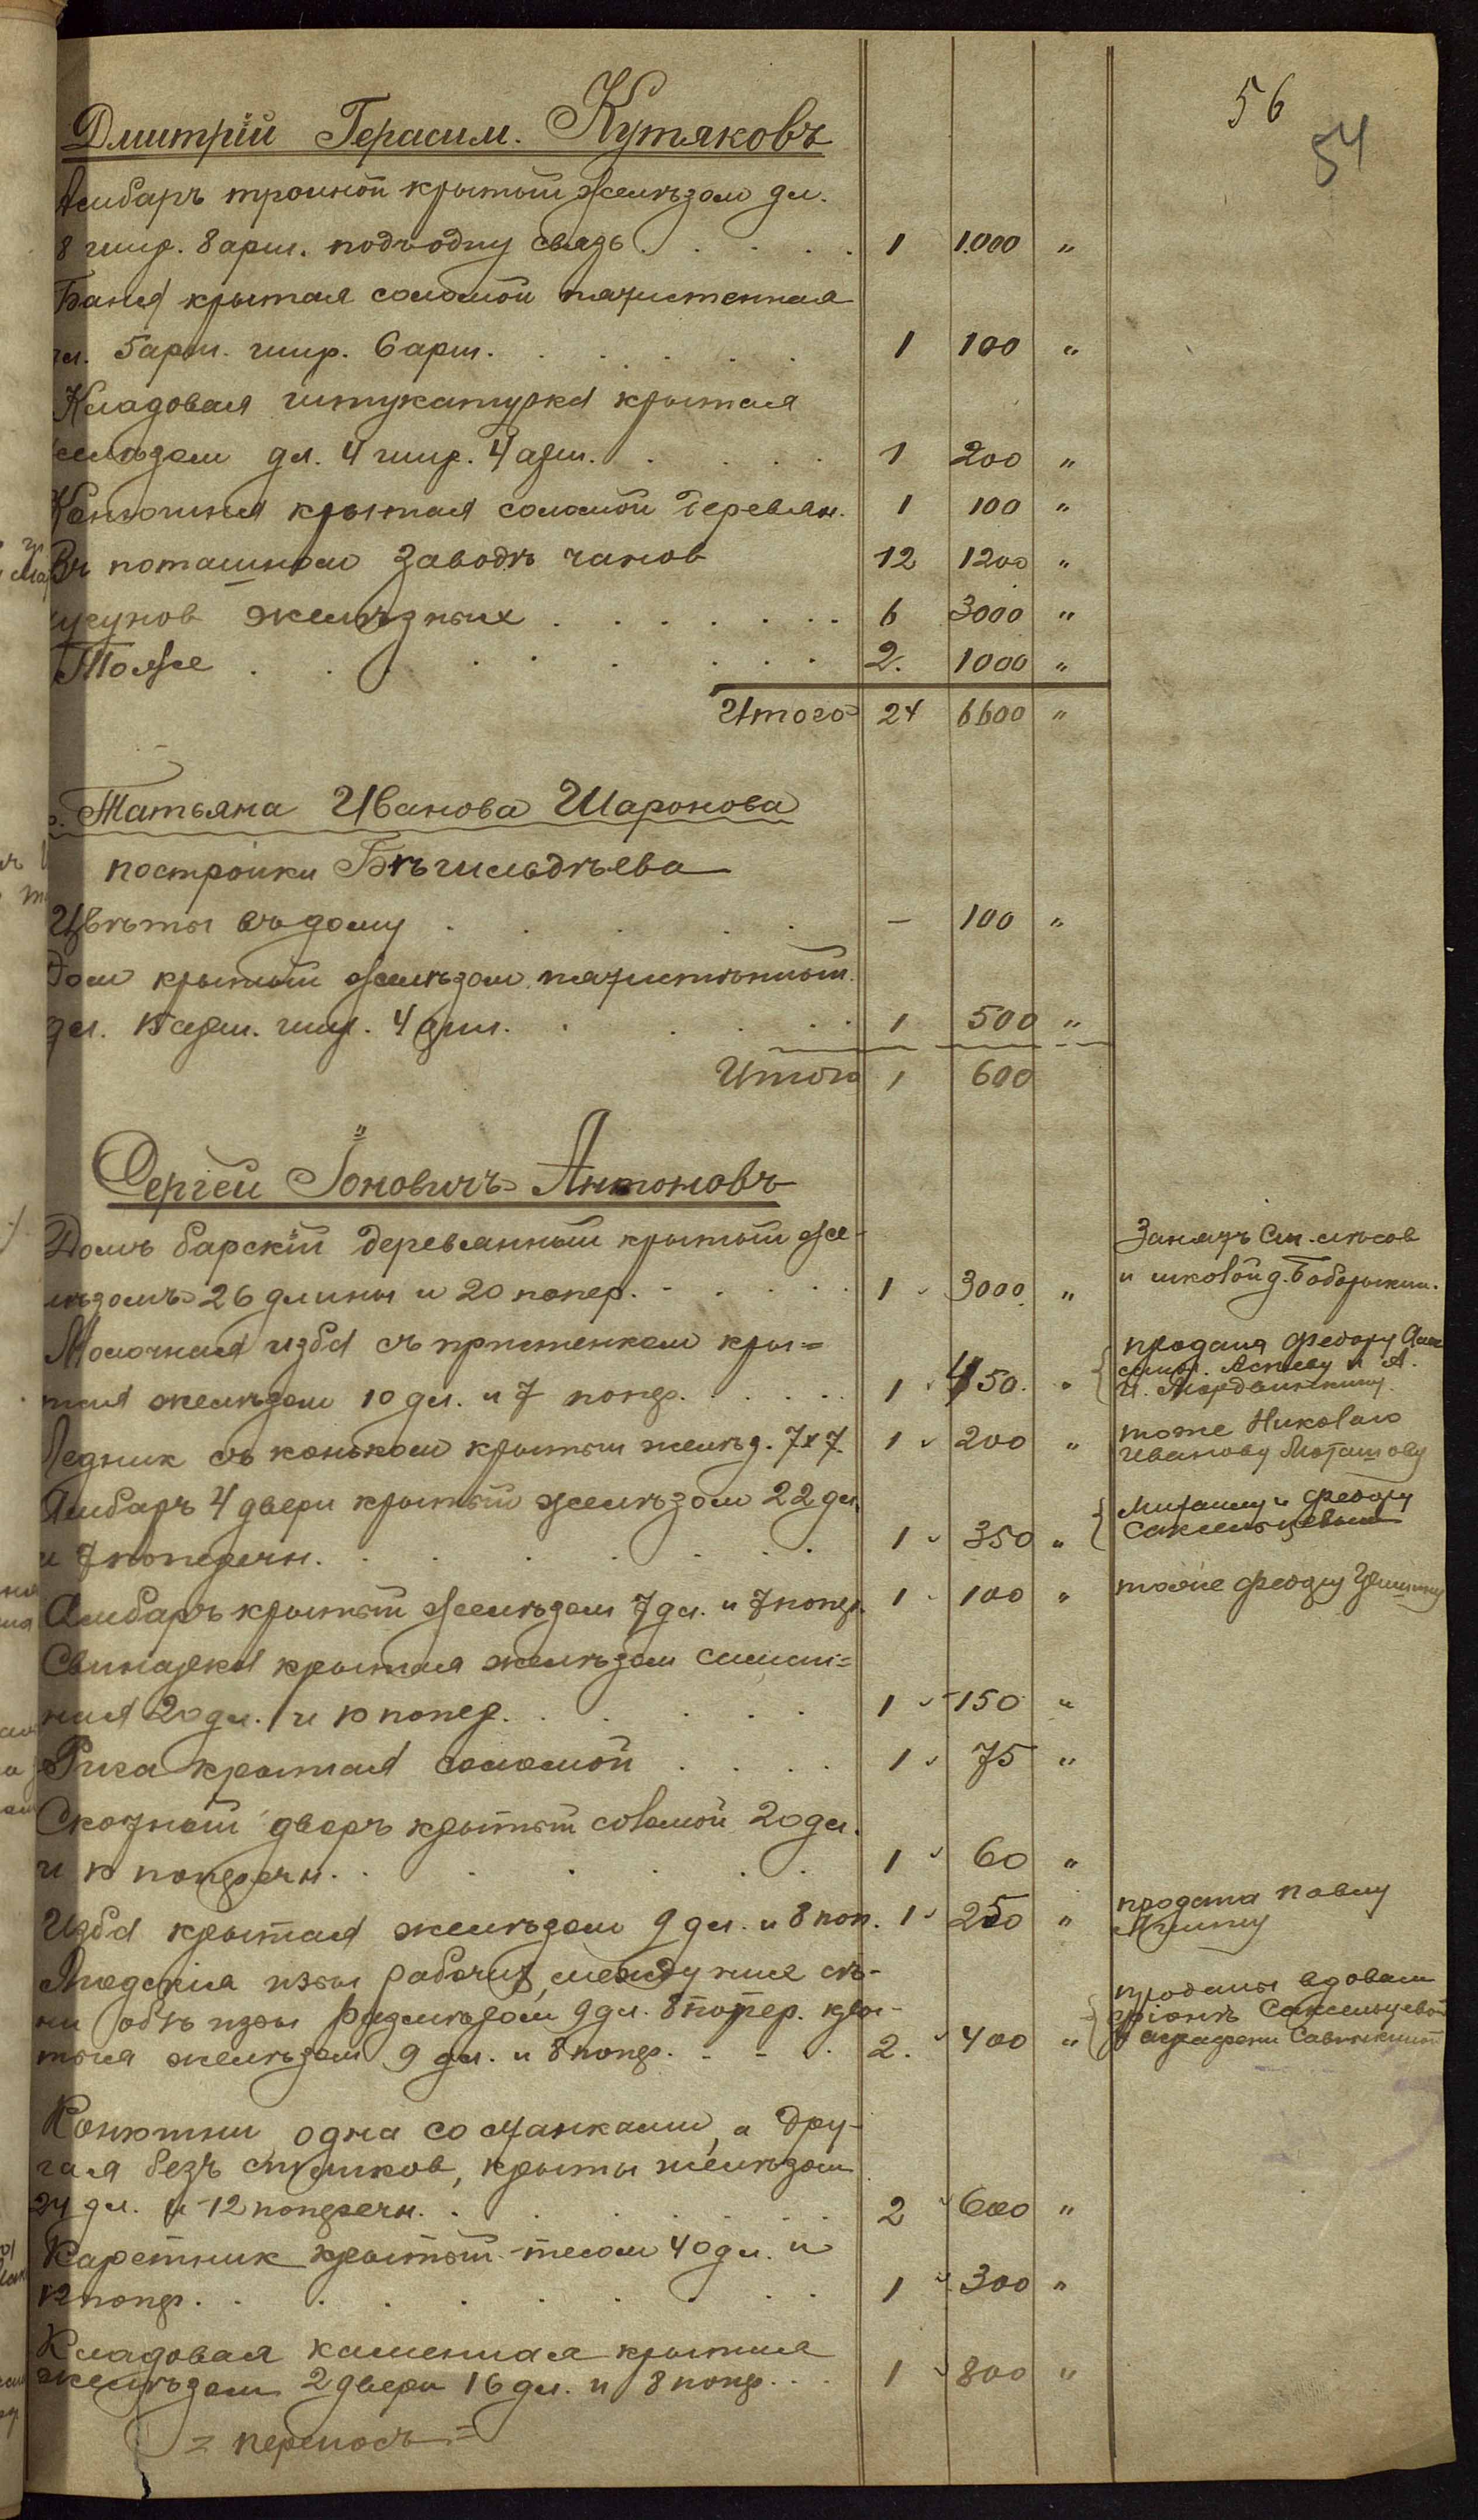 56
54
Дмитрій Герасим. Кутяковъ
Амбаръ тройной крытый желѣзом дл.
8 шир. 8 арш. подъ одну связь . . . . . 1 1.000 "
Баня крытая соломой пятистенная
дл. 5 арш. шир. 6 арш. . . . . . 1 100 "
Кладовая штукатурка крытая
желѣзом дл. 4 шир. 4 арш. . . . . 1 200 "
Конюшня крытая соломой деревян. 1 100 "
Въ поташном заводѣ чанов 12 1200 "
чугунов желѣзных . . . . . . . 6 3000 "
Тоже . . . . . . . . 2. 1000 "
Итого 24 6600 "
Татьяна Иванова Шаронова
постройки Бѣгильдѣева
Цвѣты въ дому . . . . — 100 "
Дом крытый желѣзом пятистѣнный
дл. 15 арш. шир. 4 арш. . . . . 1 500 "
Итого 1 600
Сергей Іоновичъ Антоновъ
Домъ барскій деревянный крытый же-
лѣзомъ 26 длины и 20 попер. . . . . 1 3000 "
Занятъ См. лѣсов
и школой д. Бабарыкин.
Молочная изба съ пристенком кры=
тая желѣзом 10 дл. и 7 попер. . . . . 1 450. "
продана Федору
Аспеву и А.
И. Мордвинкину
Ледник съ коньком крытый желѣз. 7х7 1 200 "
тоже Николаю
Иванову Моташову
Амбаръ 4 двери крытый желѣзом 22 дл.
и 7 поперечн. . . . . . . 1 350 "
Михаилу и Федору
Саксельцевым
Амбаръ крытый желѣзом 7 дл. и 7 попер. 1 100 "
тоже Федору
Свинарка крытая желѣзом саман=
ная 20 дл. и 10 попер. . . . . . 1 150 "
Рига крытая соломой . . . . 1 75 "
Скотный дворъ крытый соломой 20 дл.
и 10 поперечн. . . . . . 1 60 "
Изба крытая желѣзом 9 дл. и 8 поп. 1 250 "
продана Павлу
Людскія избы рабочих, между ним сѣ-
ни обѣ избы размѣром 9 дл. 8 попер. кры-
тыя желѣзом 9 дл. и 8 попер. . . . 2. 400 "
проданы вдовам
Саксельцевой
и Аграфени Савинкиной
Конюшни одна со станками, а дру-
гая безъ станков, крыты желѣзом
24 дл. и 12 поперечн. . . . . . 2 600 "
Каретник крытый тесом 40 дл. и
12 попер. . . . . . . . 1 300 "
Кладовая каменная крытая
желѣзом 2 двери 16 дл. и 8 попер. . . 1 800 "
= переносъ =